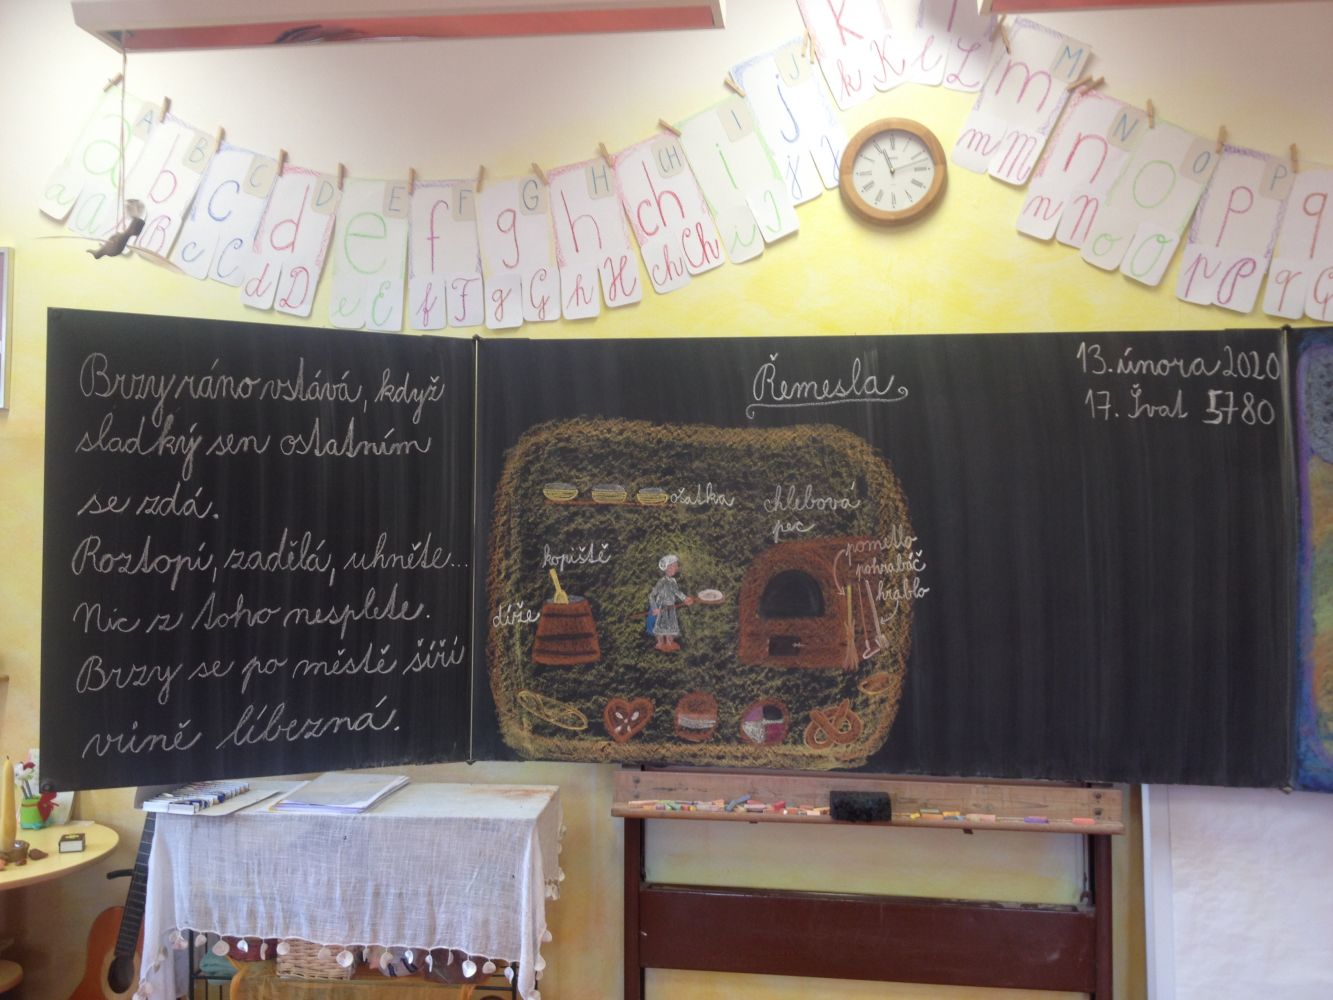 a A b B c C d D e E f F g G h H ch CH i I j J k l m M n N o O p P q
a A b B c C d D e E f F g G h H ch Ch i I j J k K l L m M n N o O p P q Q
Brzy ráno vstává, když
sladký sen ostatním
se zdá.
Roztopí, zadělá, uhněte...
Nic z toho nesplete.
Brzy se po městě šíří
vůně líbezná.
Řemesla
ošatka
chlebová
pec
kopiště
díže
pometlo
pohrabáč
hřeblo
13. února 2020
17. Švat 5780